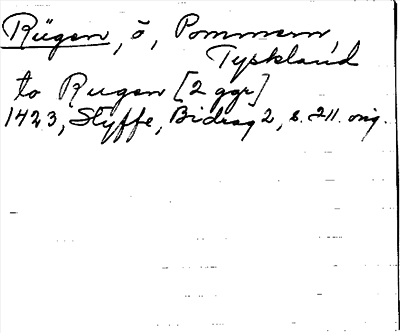 Rügen, ö, Pommern,
Tyskland
to Rugen [2 ggr]
1423, Styffe, Bidrag 2, s. 211. orig.